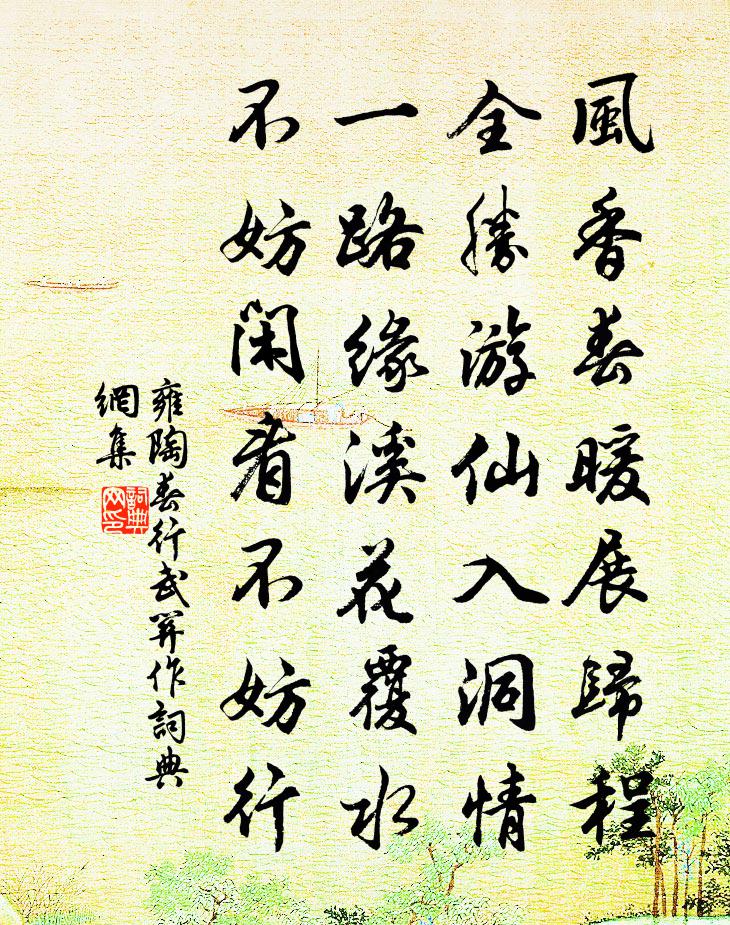 風香春暖展歸程
全勝游仙入洞情
一路緣溪花覆水
不妨閑看不妨行
雍陶春行武關作詞典
網集
詞典
网印